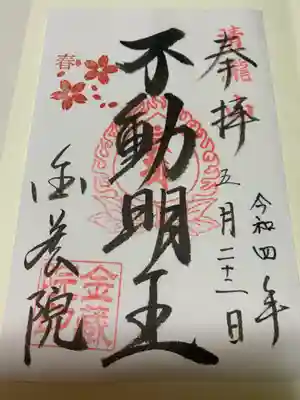 奉拝
令和四年
五月二十二日
不動明王
金蔵院
春
金蔵
院印